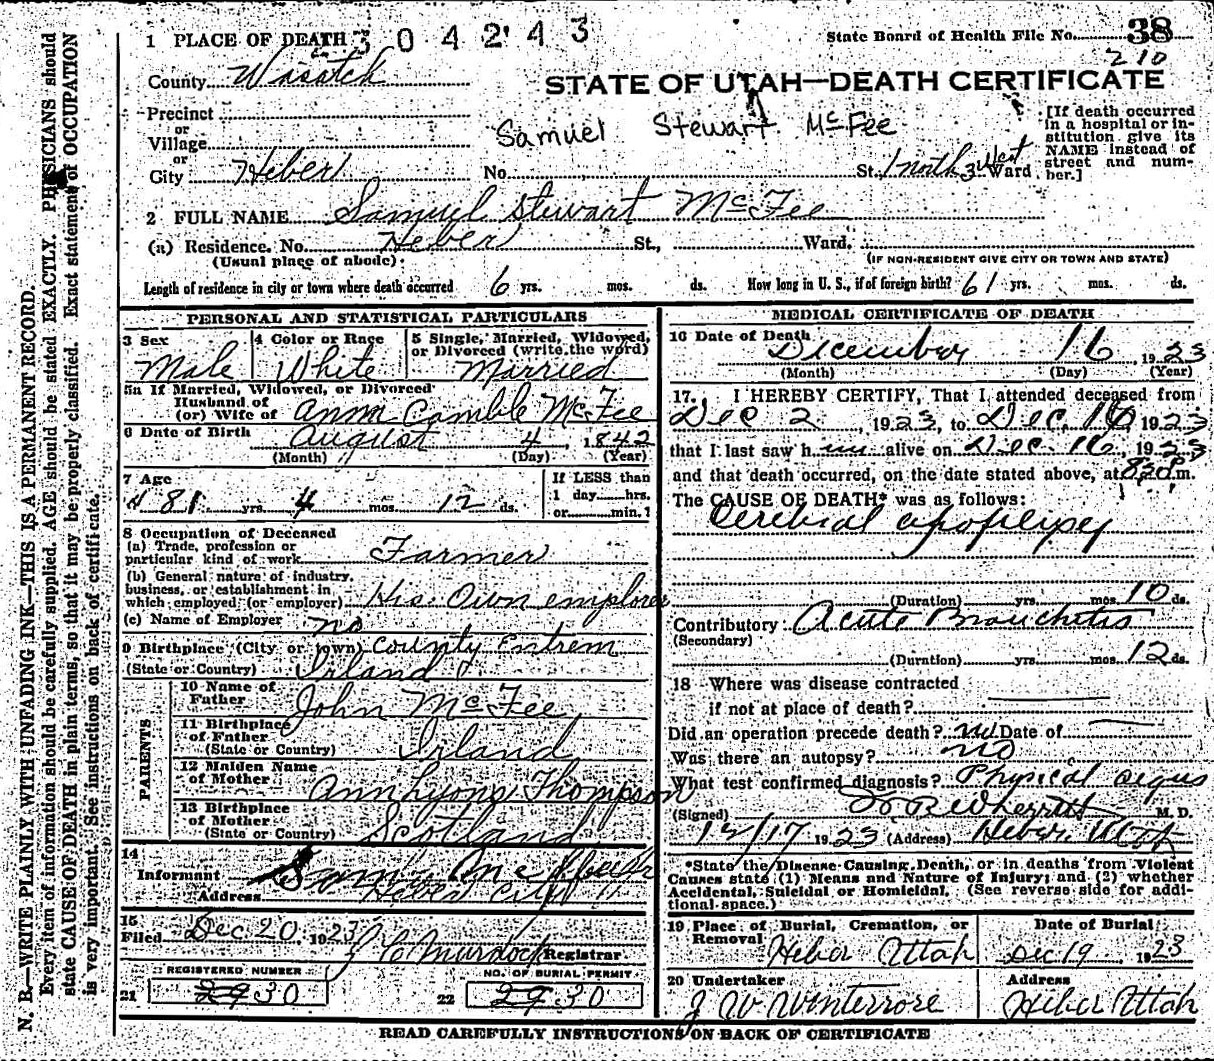 N. B.—WRITE PLAINLY WITH UNFADING INK—THIS IS A PERMANENT RECORD.
Every item of information should be carefully supplied. AGE should be stated EXACTLY. PHYSICIANS should
state CAUSE OF DEATH in plain terms, so that it may be properly classified. Exact statement of OCCUPATION
is very important. See instructions on back of certificate.
1 PLACE OF DEATH 304243 State Board of Health File No. 38
210
County Wasatch
STATE OF UTAH—DEATH CERTIFICATE
Precinct
or
Village
or
Samuel Stewart McFee
[If death occurred
in a hospital or in-
stitution give its
NAME instead of
street and num-
ber.]
City Heber No. St. 1 north 3 West Ward
2 FULL NAME Samuel Stewart McFee
(a) Residence. No. Heber St., Ward.
(Usual place of abode) (IF NON-RESIDENT GIVE CITY OR TOWN AND STATE)
Length of residence in city or town where death occurred 6 yrs. mos. ds. How long in U. S., if of foreign birth? 61 yrs. mos. ds.
PERSONAL AND STATISTICAL PARTICULARS
3 Sex Male
4 Color or Race White
5 Single, Married, Widowed, or Divorced (write the word) Married
5a If Married, Widowed, or Divorced
Husband of
(or) Wife of Ann Camble McFee
6 Date of Birth August 4, 1842
(Month) (Day) (Year)
7 Age 81 yrs. 4 mos. 12 ds.
If LESS than
1 day hrs.
or min.?
8 Occupation of Deceased
(a) Trade, profession or
particular kind of work Farmer
(b) General nature of industry,
business, or establishment in
which employed (or employer) His Own employer
(c) Name of Employer no
9 Birthplace (City or town) County Entrem
(State or Country) Irland
PARENTS
10 Name of
Father John McFee
11 Birthplace
of Father
(State or Country) Irland
12 Maiden Name
of Mother Ann Lyons Thompson
13 Birthplace
of Mother
(State or Country) Scotland
14
Informant
Address Heber City
15
Filed Dec 20, 1923 Murdock Registrar
REGISTERED NUMBER
21 2930
NO. OF BURIAL PERMIT
22 2930
MEDICAL CERTIFICATE OF DEATH
16 Date of Death December 16 1923
(Month) (Day) (Year)
17. I HEREBY CERTIFY, That I attended deceased from
Dec 2, 1923, to Dec 16 1923
that I last saw him alive on Dec. 16, 1923
and that death occurred, on the date stated above, at 830 P m.
The CAUSE OF DEATH* was as follows:
Cerebral apoplexy
(Duration) yrs. mos. 10 ds.
Contributory Acute Bronchitis
(Secondary)
(Duration) yrs. mos. 12 ds.
18 Where was disease contracted
if not at place of death?
Did an operation precede death? no Date of
Was there an autopsy? no
What test confirmed diagnosis? Physical signs
(Signed) Wherritt M. D.
12/17 1923 (Address) Heber, Utah
*State the Disease Causing Death, or in deaths from Violent
Causes state (1) Means and Nature of Injury; and (2) whether
Accidental, Suicidal or Homicidal. (See reverse side for addi-
tional space.)
19 Place of Burial, Cremation, or
Removal Heber Utah
Date of Burial
Dec 19 1923
20 Undertaker
J W Winterrose
Address
Heber Utah
READ CAREFULLY INSTRUCTIONS ON BACK OF CERTIFICATE